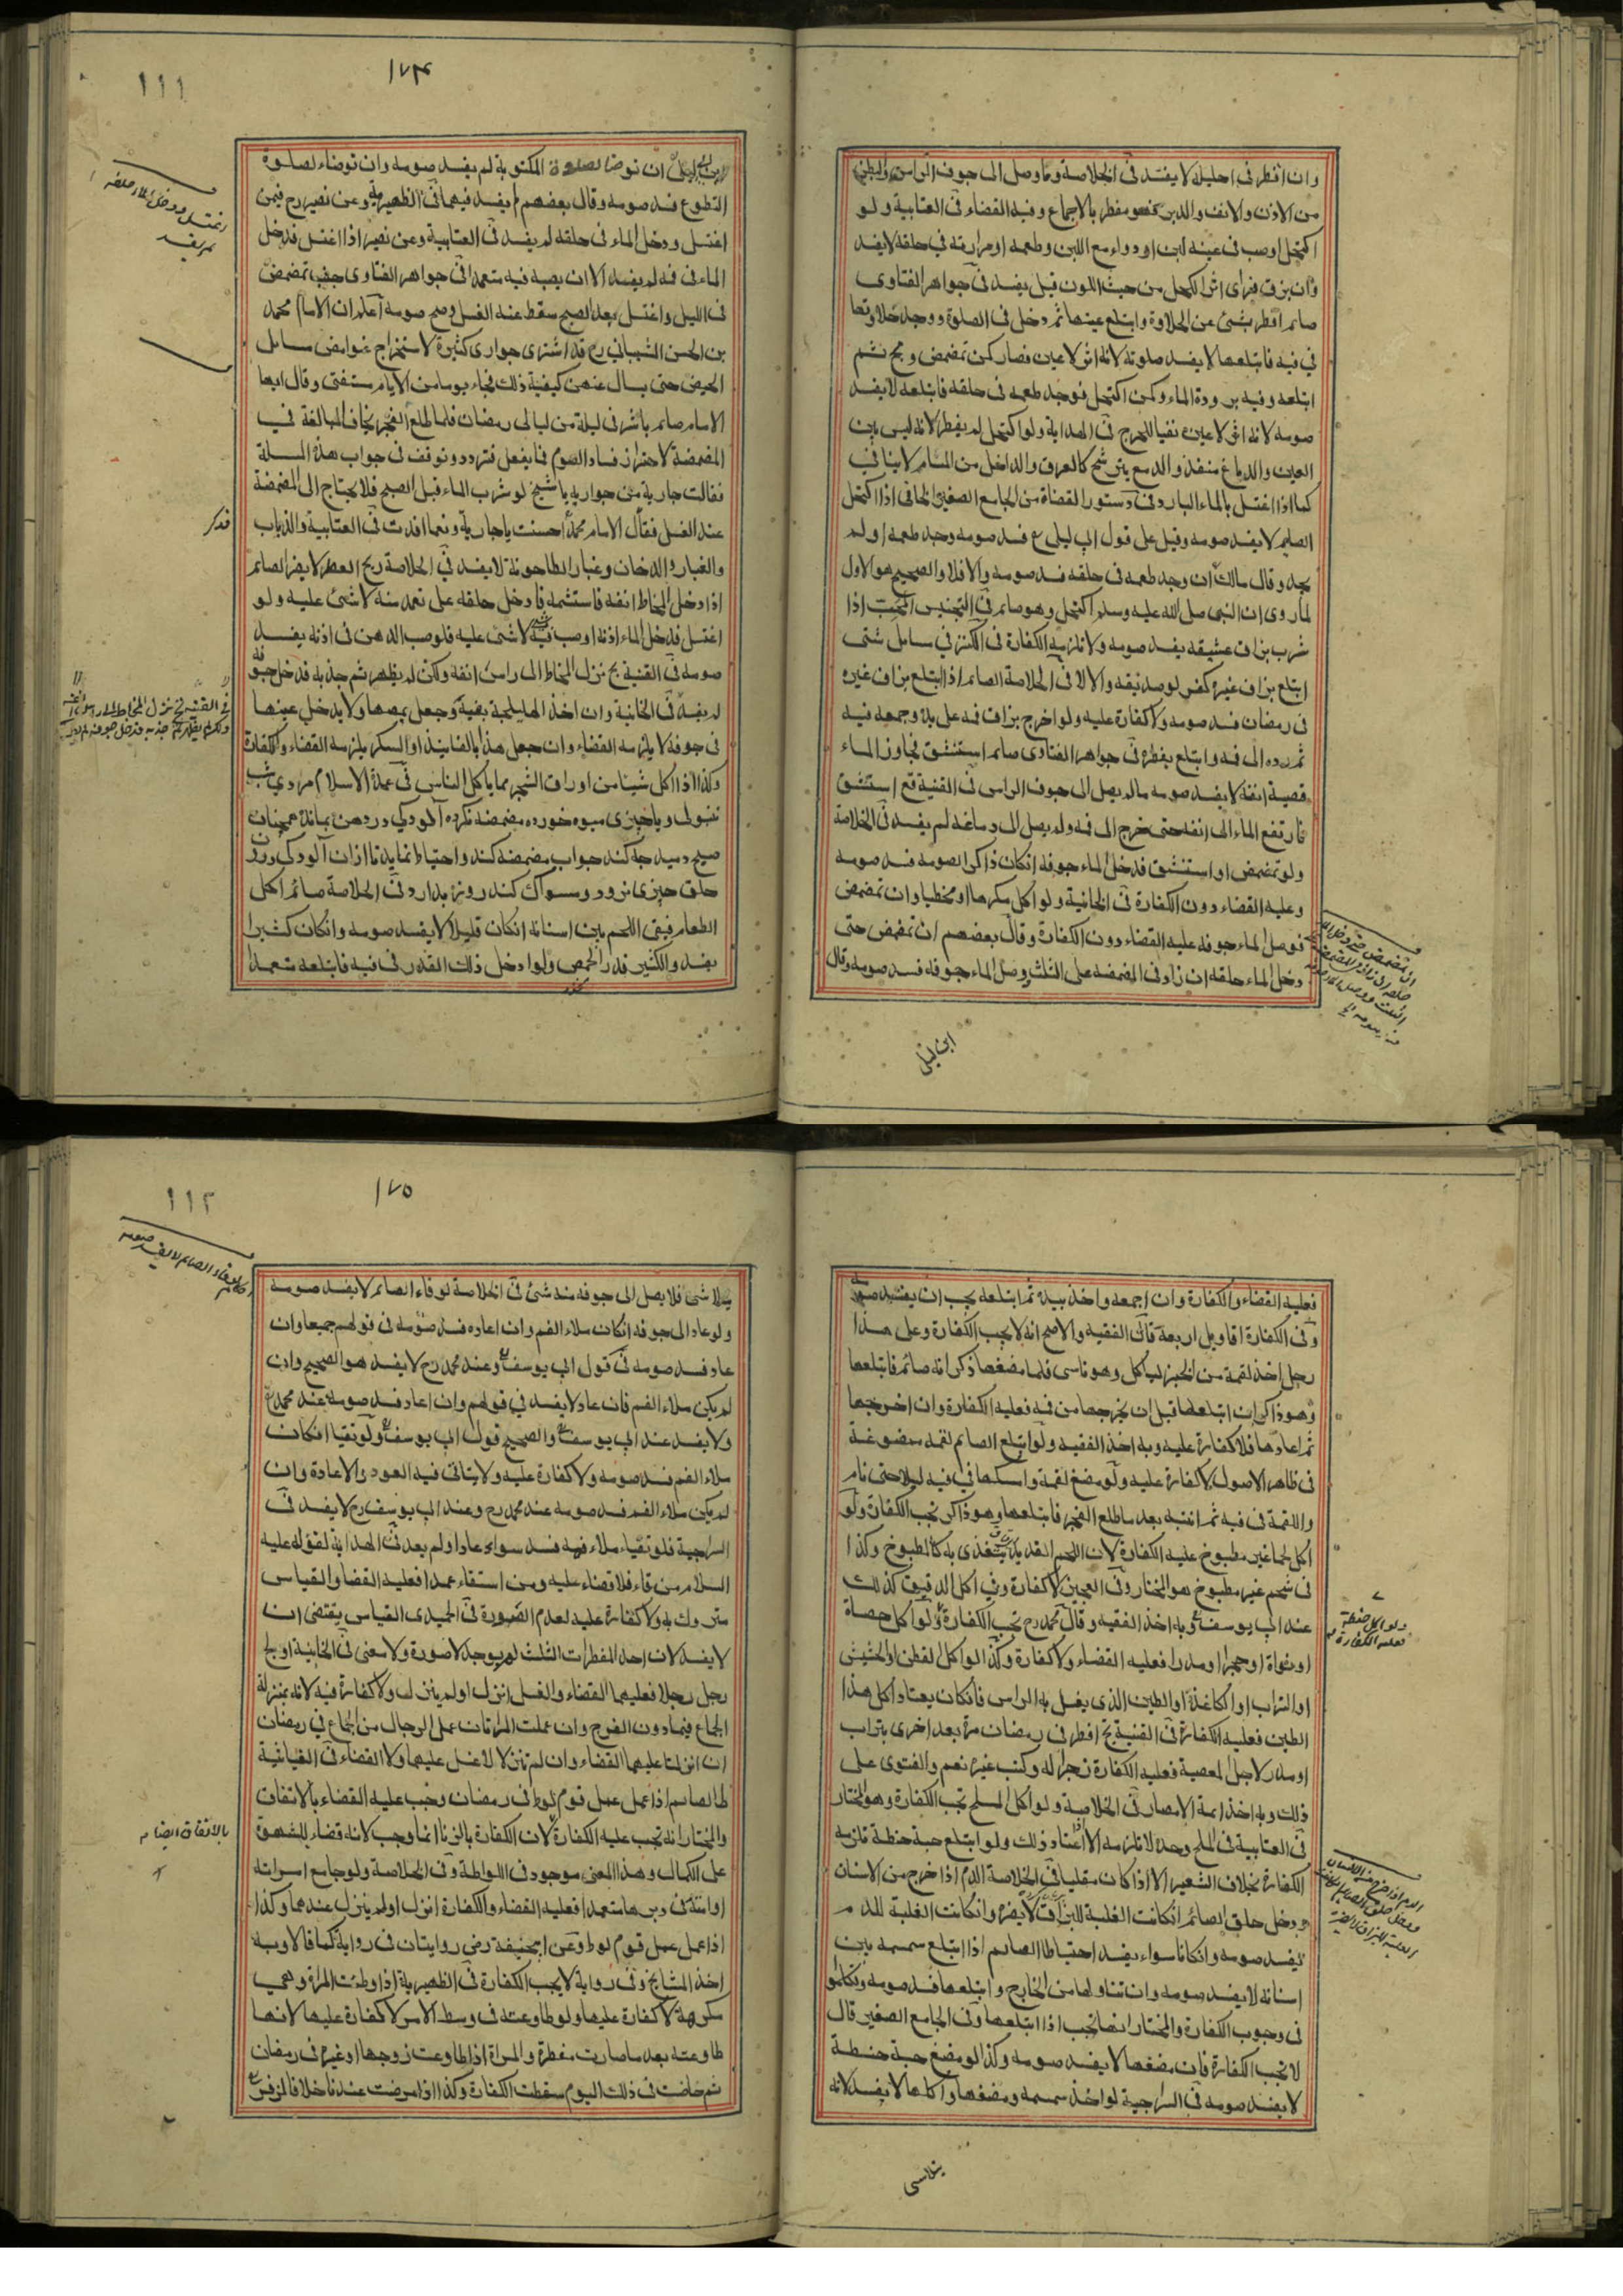 وان اقطر فى احليله لا يفسد فى الخلاصة وما وصل الى جوف الراس والبطن
من الاذن والانف والدبر فهو مفطر بالاجماع وفيه القضاء فى العتابية ولو
اكتحل اوصب فى عينه لبن او دواء مع اللبن وطعمه او مرارته فى حلقه لا يفسد
وان بزق فراى اثر الكحل من حيث اللون قيل يفسد فى جواهر الفتاوى
صائم افطر بشئ عن الحلاوة وابتلع عينها ثم دخل فى الصلوة ووجد حلاوتها
فى فيه فابتلعها لا يفسد صلوته لانه اثر لا عين فصار كمن تمضمض ومج ثم
ابتلعه وفيه برودة الماء وكمن اكتحل فوجد طعمه فى حلقه فابتلعه لا يفسد
صومه لانه اثر لا عين نفيا للحرج فى الهداية ولو اكتحل لم يفطر لانه ليس بين
العين والدماغ منفذ والدمع يترشح كالعرق والداخل من المسام لا ينافى
كما اذا اغتسل بالماء البارد فى دستور القضاة من الجامع الصغير الخانى اذا اكتحل
الصايم لا يفسد صومه وقيل على قول ابى ليلى ع فسد صومه وجد طعمه او لم
يجد وقال مالك ان وجد طعمه فى حلقه فسد صومه والا فلا والصحيح هو الاول
لما روى ان النبى صلى الله عليه وسلم اكتحل وهو صائم فى التجنيس اذا
شرب بزاق عشيقه يفسد صومه ولا تلزمه الكفارة فى الكنز فى مسائل شتى
ابتلع بزاق غيره كفر لو صديقه والا لا فى الخلاصة الصائم اذا ابتلع بزاق غيره
فى رمضان فسد صومه ولا كفارة عليه ولو اخرج بزاق فمه على يده وجمعه فيه
ثم رده الى فمه وابتلع يفطر فى جواهر الفتاوى صائم استنشق فجاوز الماء
قصبة انفه لا يفسد صومه مالم يصل الى جوف الراس فى القنية قع استنشق
فارتفع الماء الى انفه حتى خرج الى فمه ولم يصل الى دماغه لم يفسد فى الخلاصة
ولو تمضمض او استنشق فدخل الماء جوفه انكان ذاكرا لصومه فسد صومه
وعليه القضاء دون الكفارة فى الخانية ولو اكل مكرها او مخطيا وان تمضمض
فوصل الماء جوفه عليه القضاء دون الكفارة وقال بعضهم ان تمضمض حتى
دخل الماء حلقه ان زاد فى المضمضه على الثلث وصل الماء جوفه فسد صومه وقال
ابن ليلى
١٧٤
١١١
ابن ابى ليلى ان توضا لصلوة المكتوبة لم يفسد صومه وان توضاء لصلوة
التطوع فسد صومه وقال بعضهم لم يفسد فيهما فى الظهيرية وعن نصير رح فيمن
اغتسل ودخل الماء فى حلقه لم يفسد فى العتابية وعن نصير اذا اغتسل فدخل
الماء فى فمه لم يفسد الا ان يصبه فيه متعمدا فى جواهر الفتاوى جنب تمضمض
فى الليل واغتسل بعد الصبح سقط عنه الغسل وصح صومه اعلم ان الامام محمد
بن الحسن الشيبانى رح قد اشترى جوارى كثيرة لاستخراج غوامض مسائل
الحيض حتى يسال عنهن كيفية ذلك فجاء يوما من الايام مستفتى وقال ايها
الامام صائم باشر فى ليلة من ليالى رمضان فلما طلع الفجر يخاف المبالغة فى
المضمضة لاحتراز فساد الصوم فما يفعل فتردد وتوقف فى جواب هذه المسئلة
فقالت جارية من جواريه يا شيخ لو شرب الماء قبل الصبح فلا يحتاج الى المضمضة
عند الغسل فقال الامام محمد احسنت يا جارية ونعما افدت فى العتابية والذباب
والغبار والدخان وغبار الطاحونة لا يفسد فى الخلاصة ريح العطر لا يضر الصائم
اذا دخل المخاط انفه فاستشمه فادخل حلقه على تعمد منه لا شئ عليه ولو
اغتسل فدخل الماء اذنه اوصب فيه لا شئ عليه فلو صب الدهن فى اذنه يفسد
صومه فى القنية بخ نزل المخاط الى راس انفه ولكن لم يظهر ثم جذبه فدخل جوفه
لم يفسد فى الخانية وان اخذ الهليلجة بفيه وجعل يمصها ولا يدخل عينها
فى جوفه لا يلزمه القضاء وان جعل هذا بالفانيذ او السكر يلزمه القضاء والكفارة
وكذا اذا اكل شيئا من اوراق الشجر مما ياكل الناس فى عمدة الاسلام مردى شب
تنبول و يا چيزى ميوه خورده مضمضه نكرده آلودكي در دهن بمانده همچنان
صبح دميد چه كند جواب مضمضه كند واحتياط نمايد تا ازان آلودكي درون
حلق چيزى نرود ومسواك كند روزه بدارد فى الخلاصة صائم اكل
الطعام فبقى اللحم بين اسنانه انكان قليلا لا يفسد صومه وانكان كثيرا
يفسد والكثير قدر الحمص ولو ادخل ذلك القدر فى فيه فابتلعه متعمدا
فعليه القضاء والكفارة وان اجمعه واخذ بيده ثم ابتلعه يجب ان يفسد صومه
وفى الكفارة اقاويل اربعة قال الفقيه والاصح انه لا يجب الكفارة وعلى هذا
رجل اخذ لقمة من الخبز لياكل وهو ناسى فلما مضغها ذكر انه صائم فابتلعها
وهو ذاكر ان ابتلعها قبل ان يخرجها من فمه فعليه الكفارة وان اخرجها
ثم اعادها فلا كفارة عليه وبه اخذ الفقيه ولو ابتلع الصائم لقمه ممضوغة
فى ظاهر الاصول لا كفارة عليه ولو مضغ لقمة وامسكها فى فيه ليلا حتى نام
واللقمة فى فيه ثم انتبه بعد ما طلع الفجر فابتلعها وهو ذاكر تجب الكفارة ولو
اكل لحما غير مطبوخ عليه الكفارة لان اللحم القديد يتغذى به كالمطبوخ وكذا
فى شحم غير مطبوخ هو المختار وفى العجين لا كفارة وفى اكل الدقيق كذلك
عند ابى يوسف وبه اخذ الفقيه وقال محمد رح تجب الكفارة ولو اكل حصاة
او نواة او حجرا او مدرا فعليه القضاء ولا كفارة وكذا لو اكل القطن او الحشيش
او التراب او الكاغذة او الطين الذى يغسل به الراس فانكان يعتاد اكل هذا
الطين فعليه الكفارة فى القنية بخ افطر فى رمضان مرة بعد اخرى بتراب
او مدر لاجل المعصية فعليه الكفارة زجرا له وكتب غيره نعم والفتوى على
ذلك وبه اخذ ائمة الامصار فى الخلاصة ولو اكل الملح تجب الكفارة وهو المختار
فى العتابية فى الملح وحده لا تلزمه الا اذا اعتاد ذلك ولو ابتلع حبة حنطة تلزمه
الكفارة بخلاف الشعير الا اذا كان مقليا فى الخلاصة الدم اذا خرج من الاسنان
ودخل حلق الصائم انكانت الغلبة للبزاق لا يضره وانكانت الغلبة للدم
يفسد صومه وانكانا سواء يفسد احتياطا الصايم اذا ابتلع سمسمه بين
اسنانه لا يفسد صومه وان تناولها من الخارج وابتلعها فسد صومه وتكلموا
فى وجوب الكفارة والمختار انها تجب اذا ابتلعها وفى الجامع الصغير قال
لا تجب الكفارة فان مضغها لا يفسد صومه وكذا لو مضغ حبة حنطة
لا يفسد صومه فى السراجية لو اخذ سمسمه ومضغها واكلها لا يفسد لانه
يتلاشى
١٧٥
١١٢
يتلاشى فلا يصل الى جوفه منه شئ فى الخلاصة لو قاء الصائم لا يفسد صومه
ولو عاد الى جوفه انكان ملاء الفم وان اعاده فسد صومه فى قولهم جميعا وان
عاد فسد صومه فى قول ابى يوسف وعند محمد رح لا يفسد هو الصحيح وان
لم يكن ملاء الفم فان عاد لا يفسد فى قولهم وان اعاد فسد صومه عند محمد رح
ولا يفسد عند ابى يوسف والصحيح قول ابى يوسف ولو تقيا انكان
ملاء الفم فسد صومه ولا كفارة عليه ولا يتاتى فيه العود والاعادة وان
لم يكن ملاء الفم فسد صومه عند محمد رح وعند ابى يوسف رح لا يفسد فى
السراجية فلو تقياء ملاء فيه فسد سواء عاد او لم يعد فى الهداية لقوله عليه
السلام من قاء فلا قضاء عليه ومن استقاء عمدا فعليه القضا والقياس
متروك به ولا كفارة عليه لعدم الصورة فى الحميدى القياس يقتضى ان
لا يفسد لان احد المفطرات الثلث لم يوجد لا صورة ولا معنى فى الخانية اولج
رجل رجلا فعليهما القضاء والغسل انزل او لم ينزل ولا كفارة فيه لانه بمنزلة
الجماع فيما دون الفرج وان عملت المراتان عمل الرجال من الجماع فى رمضان
ان انزلتا عليهما القضاء وان لم تنزلا لا غسل عليهما ولا القضاء فى الغياثية
طالصايم اذا عمل عمل قوم لوط فى رمضان وجب عليه القضاء بالاتفاق
والمختار انه تجب عليه الكفارة لان الكفارة بالزنا انما وجب لانه قضاء للشهوة
على الكمال وهذا المعنى موجود فى اللواطة وفى الخلاصة ولو جامع امراته
او امته فى دبرها متعمدا فعليه القضاء والكفارة انزل او لم ينزل عندهما وكذا
اذا عمل عمل قوم لوط وعن ابيحنيفة رض روايتان فى رواية كما قالا وبه
اخذ المشايخ وفى رواية لا يجب الكفارة فى الظهيرية اذا وطئت المراة وهى
مكرهة لا كفارة عليها ولو طاوعته فى وسط الامر لا كفارة عليها لانها
طاوعته بعد ما صارت مفطرة والمراة اذا طاوعت زوجها او غيره فى رمضان
ثم حاضت فى ذلك اليوم سقطت الكفارة وكذا اذا مرضت عندنا خلافا لزفر
بالاتفاق ايضا